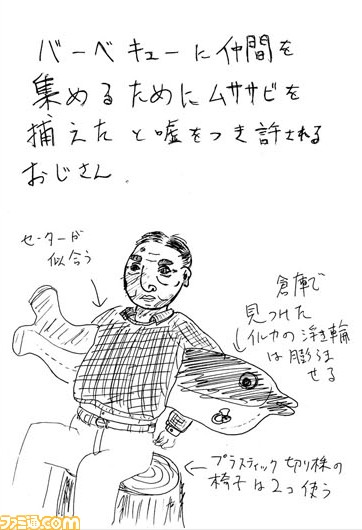 バーベキューに仲間を
集めるためにムササビを
捕えたと嘘をつき許される
おじさん.
セーターが
似合う
倉庫で
見つけた
イルカの浮き輪
は膨らま
せる
プラスティック切り株の
椅子は2つ使う
ファミ通.com